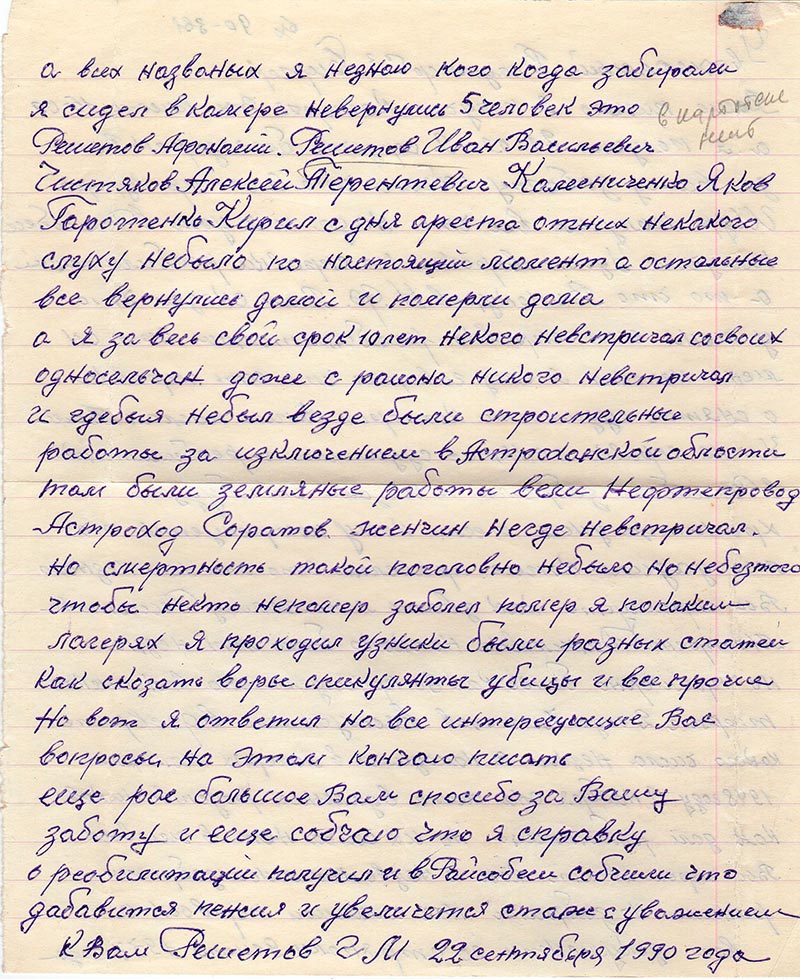 а всих названых я незнаю кого когда забирали
я сидел в камере невернулись 5 человек это
в картотеке
нит
Решетов Афонасий. Решетов Иван Васильевич
Чистяков Алексей Терентевич Калесниченко Яков
Гароженко Кирил с дня ареста отних некакого
слуху небыло по настоящий момент а остальные
все вернулись домой и померли дома
а я за весь свой срок 10 лет некого невстричал сосвоих
односельчан даже с района никого невстричал
и гдебыя небыл везде были строительные
работы за изключением в Астраханской области
там были земляные работы вели Нефтепровод
Астроход Соратов. женчин негде невстричал.
но смертность такой поголовно небыло но небезтого
чтобы некто непомер заболел помер я покаким
лагерях я проходил узники были разных статей
как сказать воры спикулянты убицы и все прочие
Но вот я ответил на все интересующие Вас
вопросы на этом кончаю писать
еще рас большое Вам спосибо за Вашу
заботу и еще собчаю что я справку
о реобилитации получил и в Райсобеси собчили что
дабавится пенсия и увеличется стаж с уважением
к Вам Решетов Г М 22 сентября 1990 года